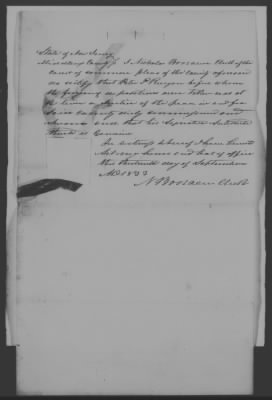 State of New Jersey
Middlesex County I Nicholas Booraem Clerk of the
Court of common pleas of the County aforesaid
do certify that Peter P Runyon before whom
the foregoing depositions were taken was at
the time a Justice of the peace in and for
said County duly commissioned and
sworn and that his Signature
thereto is Genuine
In witness whereof I have hereunto
Set my hand and Seal of office
this day of September
AD 1833
N Booraem Clerk